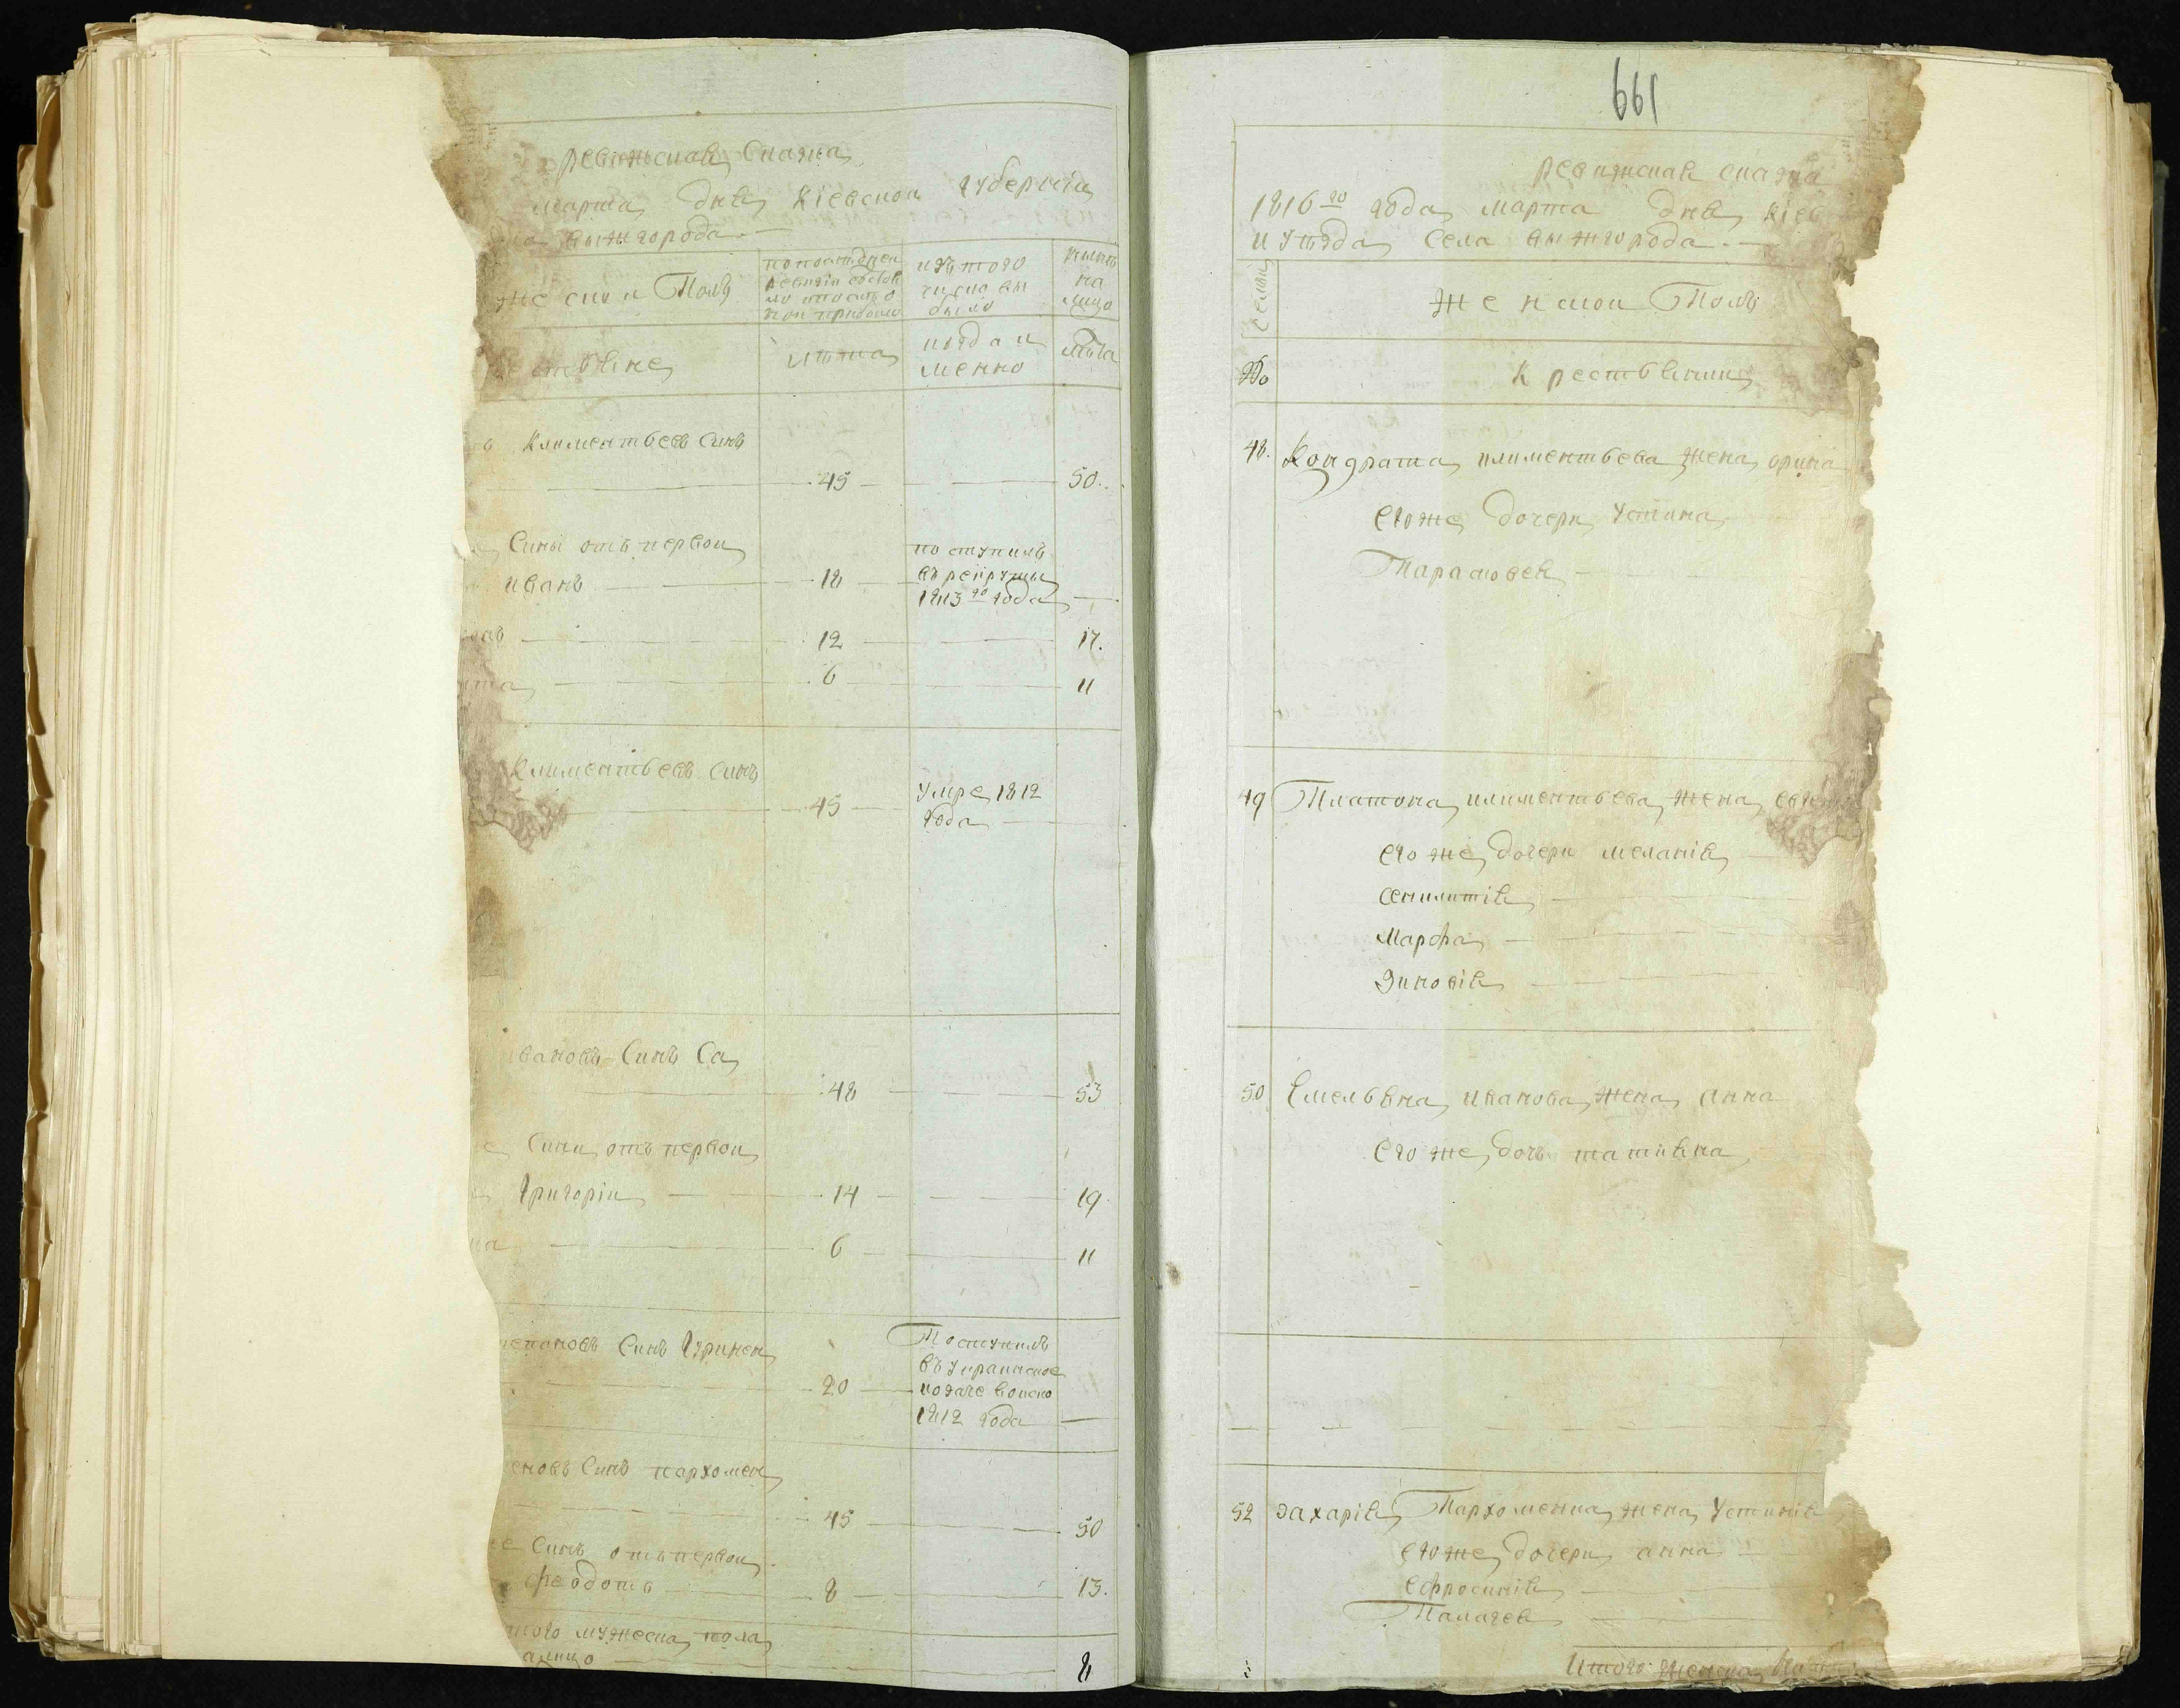 Ревижская Сказка
марта дня Кіевской губерніи
вижгорода
жеский Полъ
по последней ревизіи состоя
ло и после о
ной прибыло
изъ того
числа вы
было
ныне
на
лицо
лѣта
когда и
менно
лѣта
Климентьевъ Синъ
45 50.
Сини отъ первой
иванъ 18 поступилъ
въ рекруты
1813го года
12 17.
6 11
Климентьевъ синъ
45 умре 1812
года
вановъ Синъ Са
48 53
Сини отъ первой
Григорій 14 19
6 11
тепановъ Синъ Гринен
20 Поступилъ
въ украинское
козаче войско
1812 года
еновъ Синъ пархомен
45 50
Синъ отъ первой
феодотъ 8 13.
того мужеска пола
алицо 8
661
Ревижская сказка
1816го года марта дня Кіев
и уѣзда Села вижгорода.
Семьи
Женской Полъ
№
Крестьянки
48. Кондрата климентьева жена орина
Егоже дочери Устина
Парасковея
49 Платона климентьева жена
Его же дочери меланія
секилитія
Марфа
Зиновія
50 Емельяна иванова жена анна
Его же дочь татияна
52 Захарія Пархоменка жена Устинія
Егоже дочери анна
Ефросинія
Палагея
Итого женска